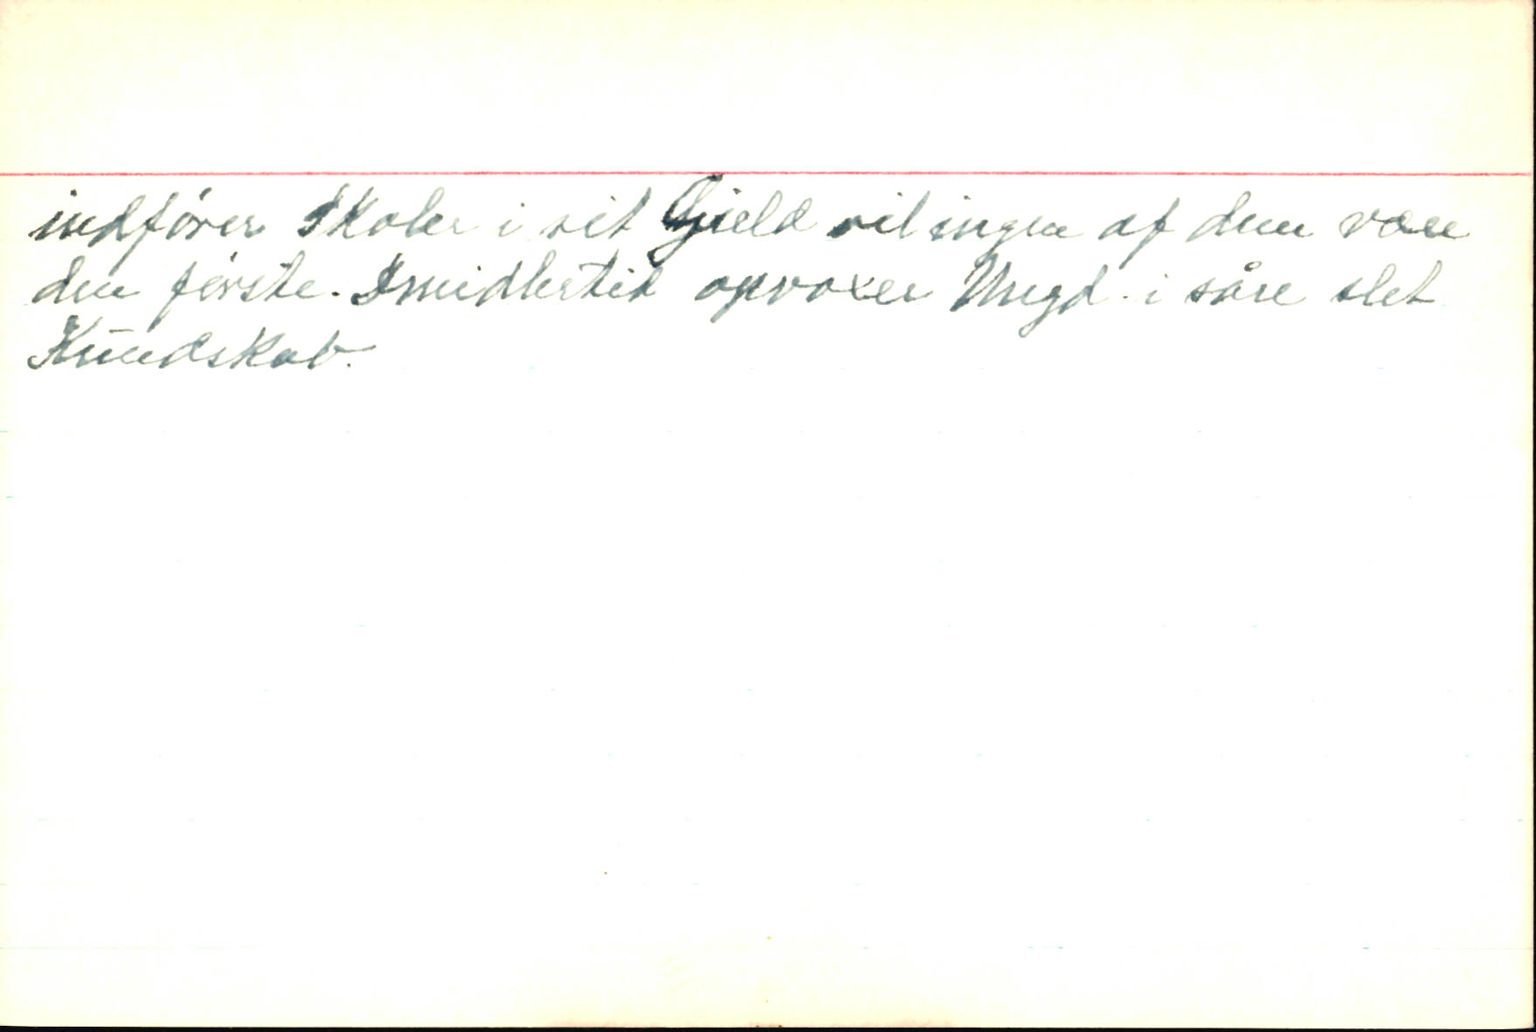 indfører Skoler i sit Gjeld vil ingen af dem være
den første. Imidlertid opvoxer Ungd. i såre slet
Kundskab.